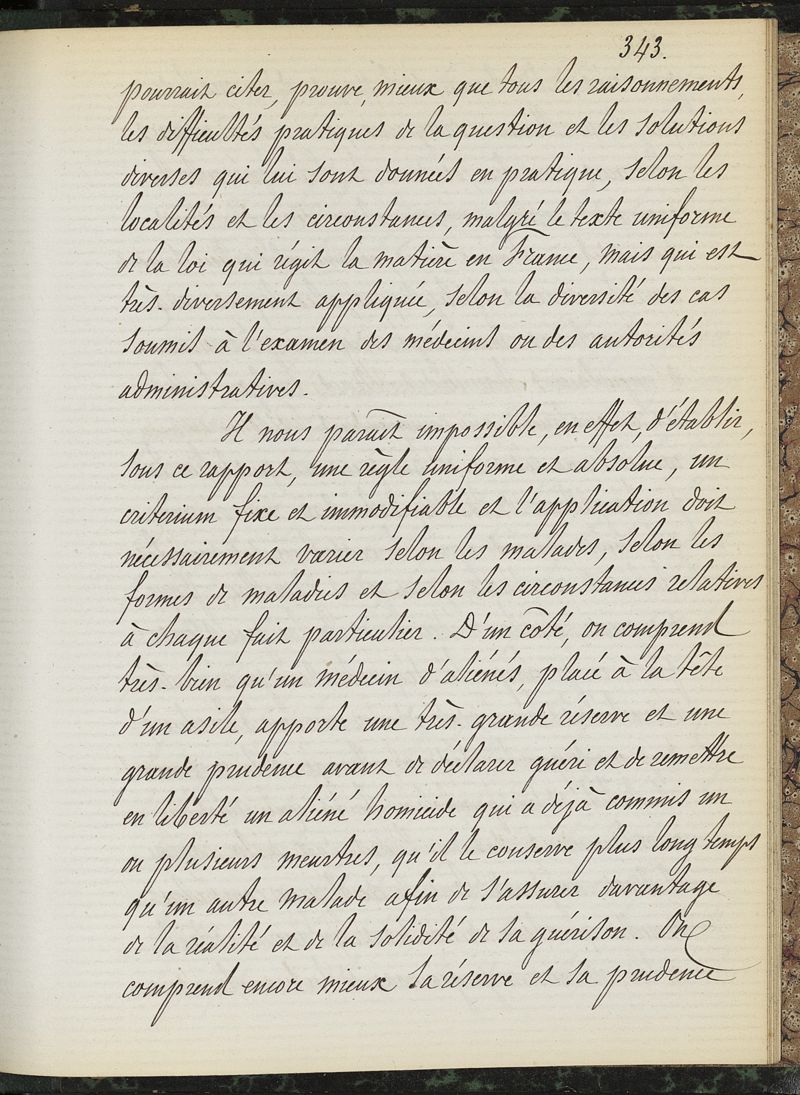 343.
pourrait citer, prouve, mieux que tous les raisonnements,
les difficultés pratiques de la question et les solutions
diverses qui lui sont données en pratique, selon les
localités et les circonstances, malgré le texte uniforme
de la loi qui régit la matière en France, mais qui est
très-diversement appliquée, selon la diversité des cas
soumis à l'examen des médecins ou des autorités
administratives.
Il nous paraît impossible, en effet, d'établir,
sous ce rapport, une règle uniforme et absolue, un
criterium fixe et immodifiable et l'application doit
nécessairement varier selon les malades, selon les
formes de maladies et selon les circonstances relatives
à chaque fait particulier. D'un côté, on comprend
très-bien qu'un médecin d'aliénés, placé à la tête
d'un asile, apporte une très-grande réserve et une
grande prudence avant de déclarer guéri et de remettre
en liberté un aliéné homicide qui a déjà commis un
ou plusieurs meurtres, qu'il le conserve plus long temps
qu'un autre malade afin de s'assurer davantage
de la réalité et de la solidité de sa guérison. On
comprend encore mieux sa réserve et sa prudence